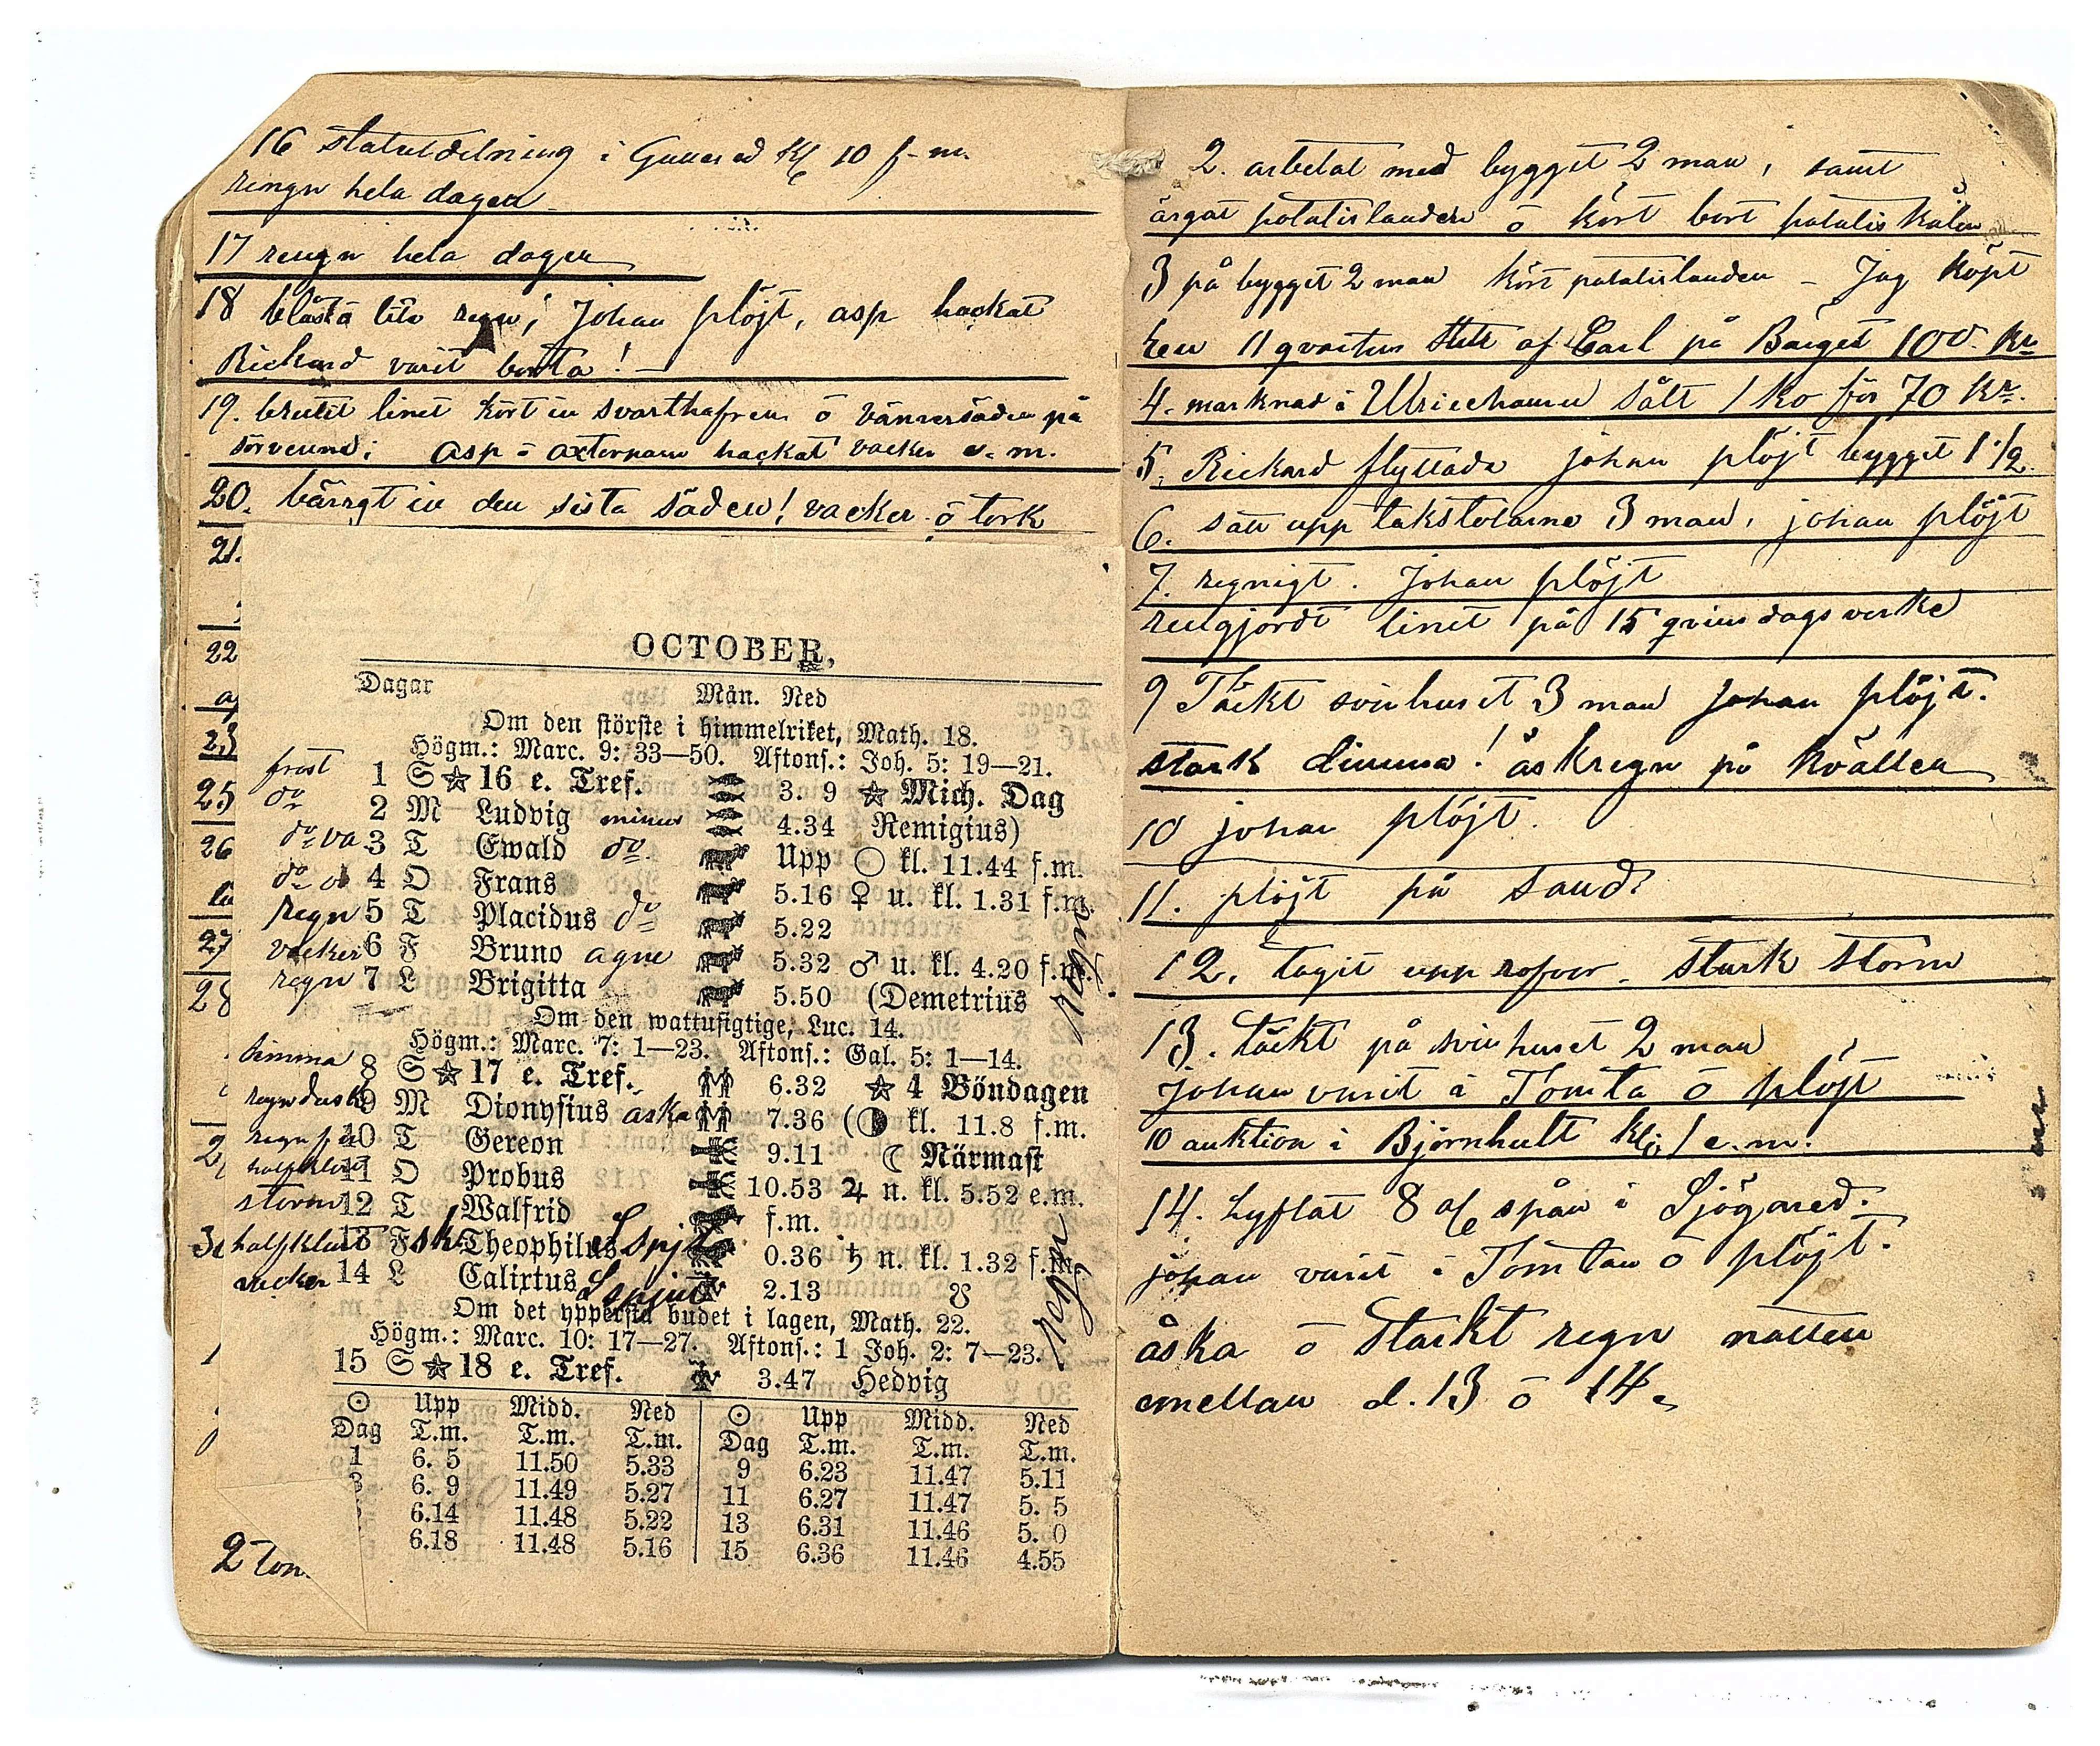 16 statutdelning i Gunnared Kl 10 f-m.
rengn hela dagen
17 rengn hela dagen
18 blåst ō lite regn; Johan plöjt, asp hackat
Rickard varit borta! —
19. brutit linet kört in svarthafren ō vänrersäden på
asp ō axtornarn hackat vacker e.m.
20. bärgt in den sista säden! vacker ō tork
21.
22
23
25
26
27
28
2 ton
OCTOBER,
Dagar Mån. Ned
Om den störste i himmelriket, Math. 18.
Högm.: Marc. 9: 33—50. Aftons.: Joh. 5: 19—21.
frost 1 S ☆ 16 e. Tref. 3. 9 ☆ Mich. Dag
do 2 M Ludvig minus 4.34 Remigius)
do va 3 T Ewald do Upp ○ kl. 11.44 f.m.
do 4 O Frans 5.16 ♀ u. kl. 1.31 f.m.
regn 5 T Placidus do 5.22
vacker 6 F Bruno agne 5.32 ♂ u. kl. 4.20 f.m.
regn 7 L Brigitta 5.50 (Demetrius
regn
Om den wattusigtige, Luc. 14.
Högm.: Marc. 7: 1—23. Aftons.: Gal. 5: 1—14.
dimma 8 S ☆ 17 e. Tref. 6.32 ☆ 4 Böndagen
regndusk 9 M Dionysius åska 7.36 (◑ kl. 11.8 f.m.
regn 10 T Gereon 9.11 ☾ Närmast
halfklart 11 O Probus 10.53 ♃ n. kl. 5.52 e.m.
storm 12 T Walfrid f.m.
halfklart 13 F Theophilus 0.36 ♄ n. kl. 1.32 f.m.
vacker 14 L Calixtus 2.13 ☋
regn
Om det yppersta budet i lagen, Math. 22.
Högm.: Marc. 10: 17—27. Aftons.: 1 Joh. 2: 7—23.
15 S ☆ 18 e. Tref. 3.47 Hedvig
☉ Upp Midd. Ned ☉ Upp Midd. Ned
Dag T.m. T.m. T.m. Dag T.m. T.m. T.m.
1 6. 5 11.50 5.33 9 6.23 11.47 5.11
3 6. 9 11.49 5.27 11 6.27 11.47 5. 5
6.14 11.48 5.22 13 6.31 11.46 5. 0
6.18 11.48 5.16 15 6.36 11.46 4.55
2. arbetat med bygget 2 man, samt
årgat potatislanden ō kört bort potatiskålen
3 på bygget 2 man kört potatislanden – Jag köpt
en 11 qvarters af Carl på Bärget 100. Kr
4. marknad i Ulricehamn sålt 1 ko för 70 Kr.
5. Rickard flyttade johan plöjt bygget 1 1/2
6. satt upp takstolarne 3 man, johan plöjt
7. regnigt. Johan plöjt
rengjordt linet på 15 qvins dagsverke
9 Täckt svinhuset 3 man johan plöjt.
stark dimma! åskregn på kvällen
10 johan plöjt.
11. plöjt på sand
12. tagit upp rofvor – stark storm
13. täckt på svinhuset 2 man
johan varit i Tomta ō plöjt
10 auktion i Björnhult kl; 1 e.m.
14. Lyftat 8 spån i Sjögared.
johan varit i Tomtan ō plöjt.
åska ō starkt regn natten
emellan d. 13 ō 14.